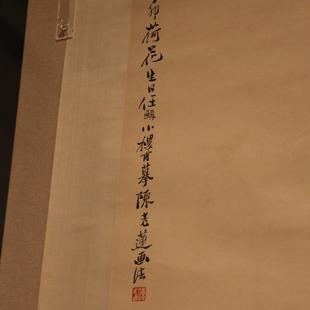 卯荷花生日任頤小樓甫摹陳老蓮画法